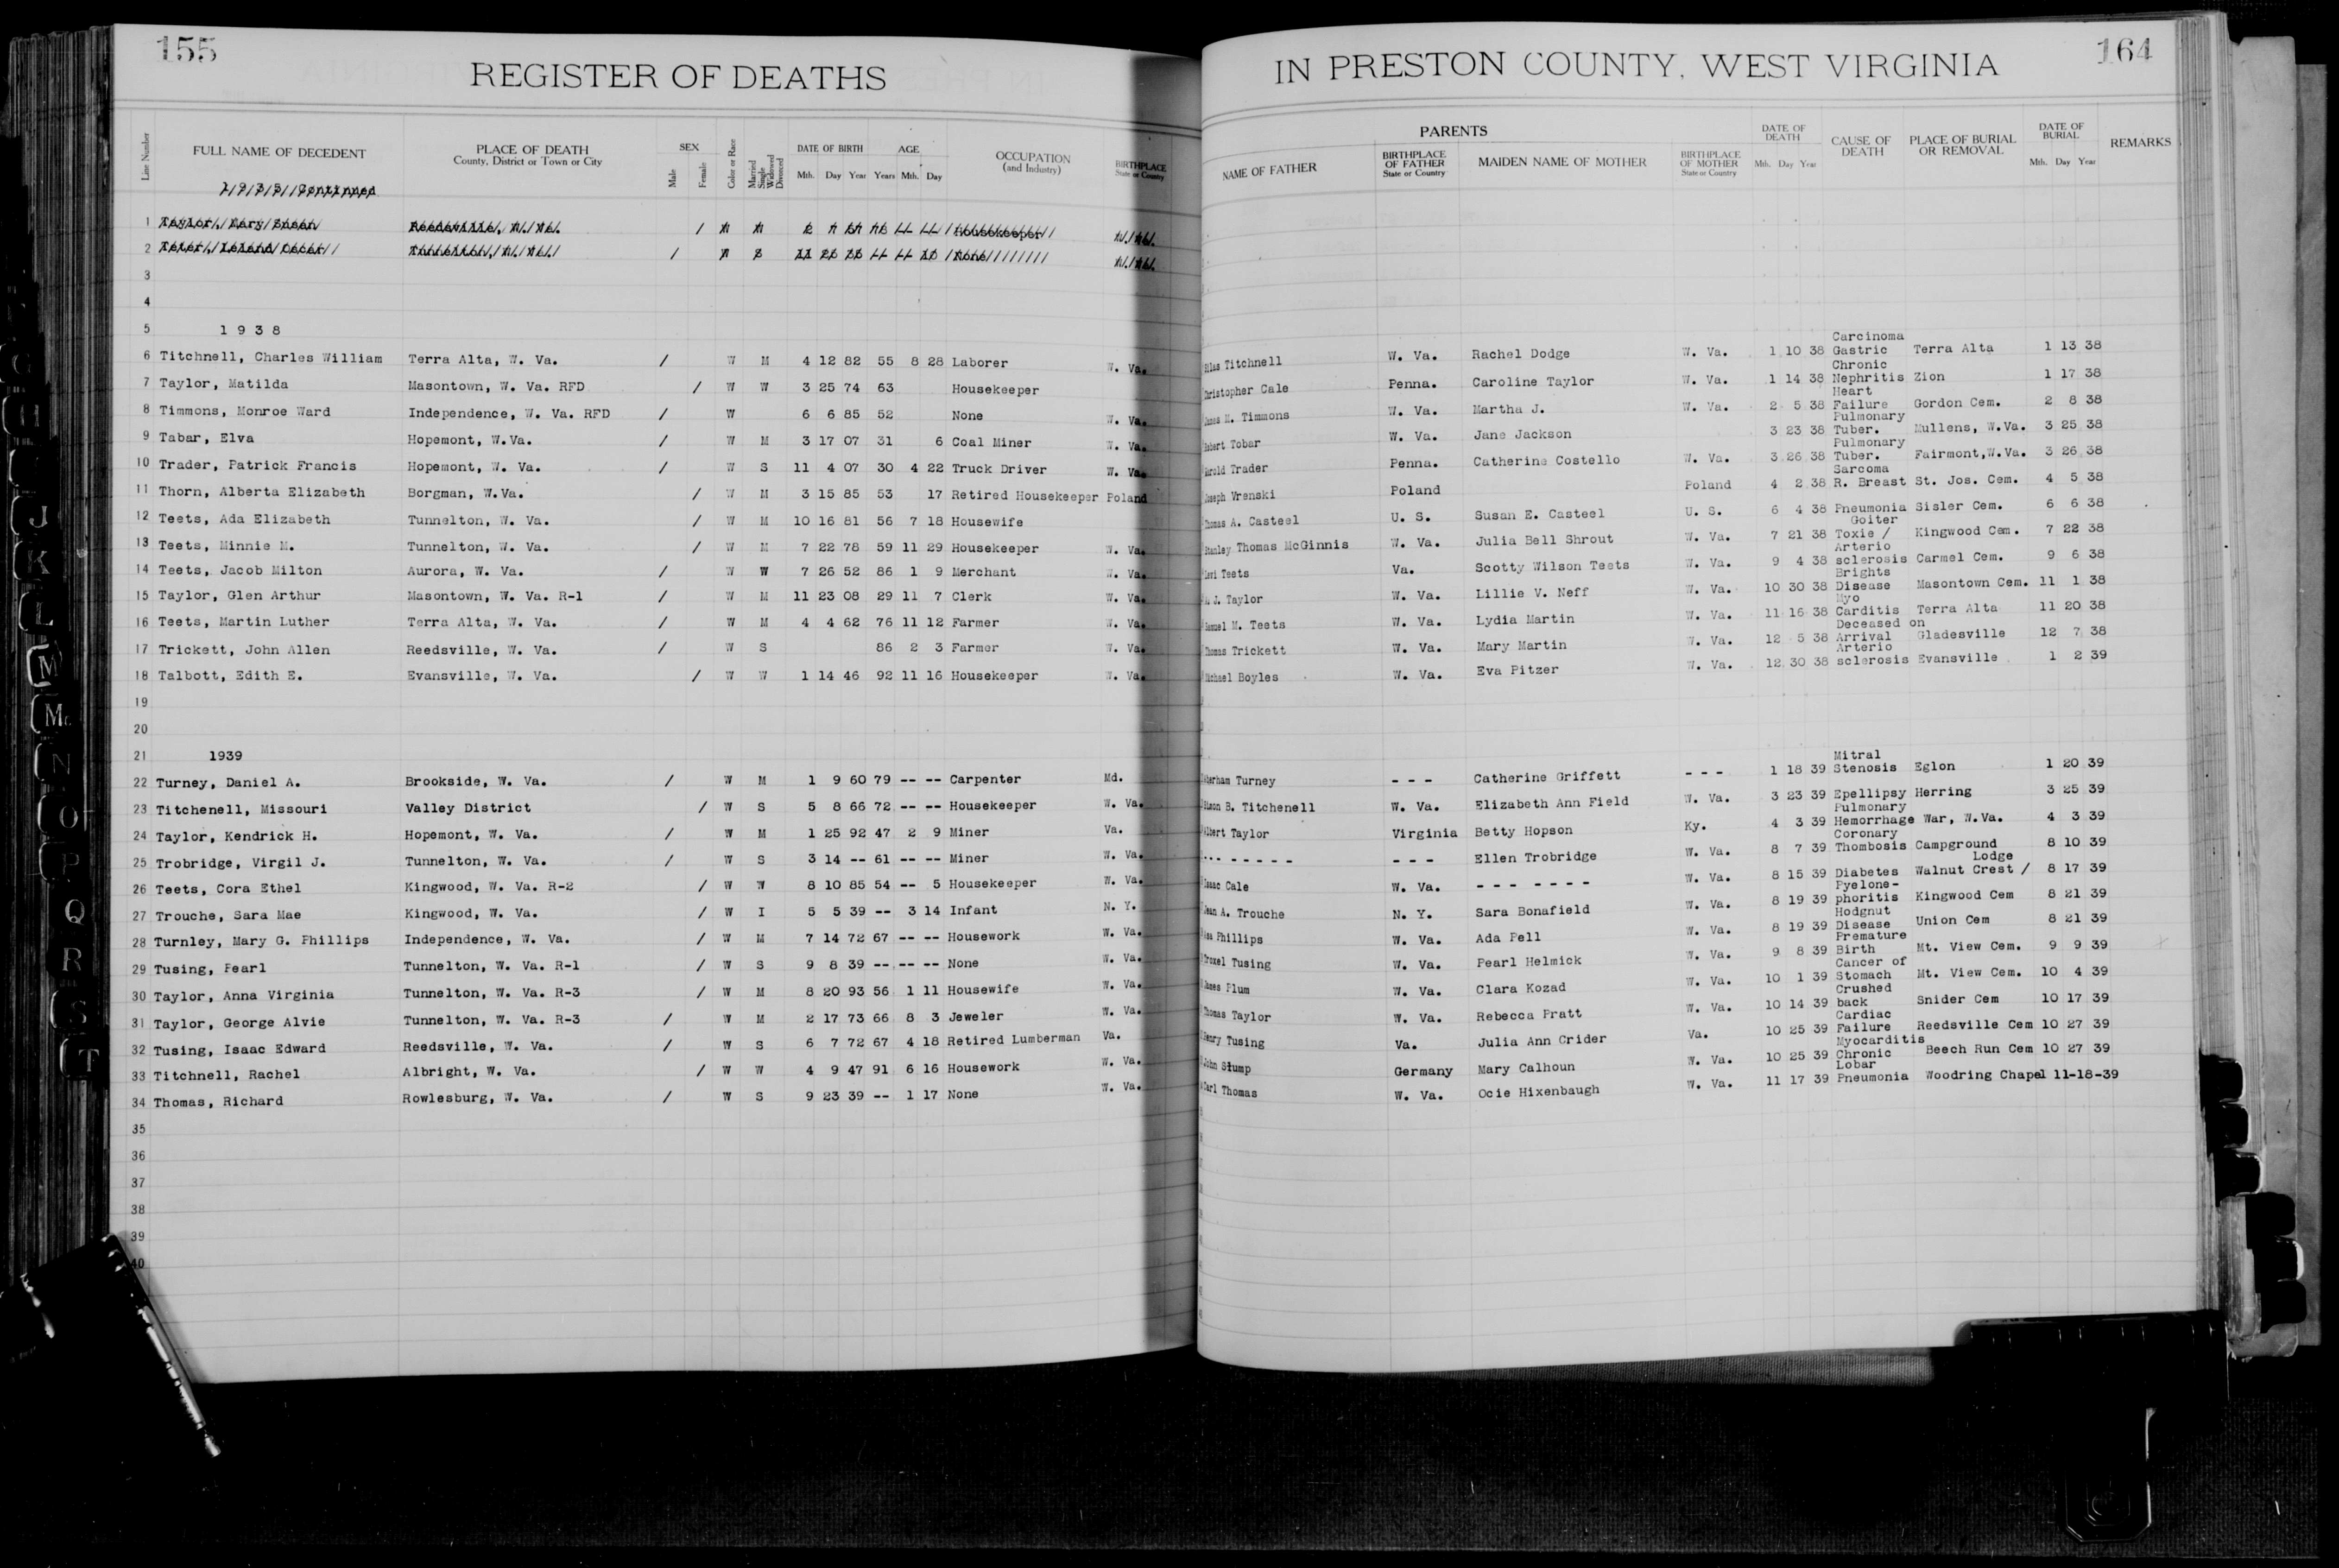 155
REGISTER OF DEATHS
IN PRESTON COUNTY, WEST VIRGINIA
164
Line Number
FULL NAME OF DECEDENT
PLACE OF DEATH
County, District or Town or City
SEX
Male
Female
Color or Race
Married Single Widowed Divorced
DATE OF BIRTH
Mth. Day Year
AGE
Years Mth. Day
OCCUPATION
(and Industry)
BIRTHPLACE
State or Country
PARENTS
NAME OF FATHER
BIRTHPLACE OF FATHER
State or Country
MAIDEN NAME OF MOTHER
BIRTHPLACE OF MOTHER
State or Country
DATE OF DEATH
Mth. Day Year
CAUSE OF DEATH
PLACE OF BURIAL OR REMOVAL
DATE OF BURIAL
Mth. Day Year
REMARKS
1
2
3
4
5 1 9 3 8
6 Titchnell, Charles William Terra Alta, W. Va. / W M 4 12 82 55 8 28 Laborer W. Va. Titchnell W. Va. Rachel Dodge W. Va. 1 10 38 Carcinoma Gastric Terra Alta 1 13 38
7 Taylor, Matilda Masontown, W. Va. RFD / W W 3 25 74 63 Housekeeper Christopher Cale Penna. Caroline Taylor W. Va. 1 14 38 Chronic Nephritis Zion 1 17 38
8 Timmons, Monroe Ward Independence, W. Va. RFD / W 6 6 85 52 None W. Va. M. Timmons W. Va. Martha J. W. Va. 2 5 38 Heart Failure Gordon Cem. 2 8 38
9 Tabar, Elva Hopemont, W.Va. / W M 3 17 07 31 6 Coal Miner W. Va. Robert Tobar W. Va. Jane Jackson 3 23 38 Pulmonary Tuber. Mullens, W.Va. 3 25 38
10 Trader, Patrick Francis Hopemont, W. Va. / W S 11 4 07 30 4 22 Truck Driver W. Va. Harold Trader Penna. Catherine Costello W. Va. 3 26 38 Pulmonary Tuber. Fairmont,W.Va. 3 26 38
11 Thorn, Alberta Elizabeth Borgman, W.Va. / W M 3 15 85 53 17 Retired Housekeeper Poland Joseph Vrenski Poland Poland 4 2 38 Sarcoma R. Breast St. Jos. Cem. 4 5 38
12 Teets, Ada Elizabeth Tunnelton, W. Va. / W M 10 16 81 56 7 18 Housewife Thomas A. Casteel U. S. Susan E. Casteel U. S. 6 4 38 Pneumonia Sisler Cem. 6 6 38
13 Teets, Minnie M. Tunnelton, W. Va. / W M 7 22 78 59 11 29 Housekeeper W. Va. Stanley Thomas McGinnis W. Va. Julia Bell Shrout W. Va. 7 21 38 Goiter Toxie / Kingwood Cem. 7 22 38
14 Teets, Jacob Milton Aurora, W. Va. / W W 7 26 52 86 1 9 Merchant W. Va. Levi Teets Va. Scotty Wilson Teets W. Va. 9 4 38 Arterio sclerosis Carmel Cem. 9 6 38
15 Taylor, Glen Arthur Masontown, W. Va. R-1 / W M 11 23 08 29 11 7 Clerk W. Va. J. Taylor W. Va. Lillie V. Neff W. Va. 10 30 38 Brights Disease Masontown Cem. 11 1 38
16 Teets, Martin Luther Terra Alta, W. Va. / W M 4 4 62 76 11 12 Farmer W. Va. Samuel M. Teets W. Va. Lydia Martin W. Va. 11 16 38 Myo Carditis Terra Alta 11 20 38
17 Trickett, John Allen Reedsville, W. Va. / W S 86 2 3 Farmer W. Va. Thomas Trickett W. Va. Mary Martin W. Va. 12 5 38 Deceased on Arrival Gladesville 12 7 38
18 Talbott, Edith E. Evansville, W. Va. / W W 1 14 46 92 11 16 Housekeeper W. Va. Michael Boyles W. Va. Eva Pitzer W. Va. 12 30 38 Arterio sclerosis Evansville 1 2 39
19
20
21 1939
22 Turney, Daniel A. Brookside, W. Va. / W M 1 9 60 79 -- -- Carpenter Md. Turney - - - Catherine Griffett - - - 1 18 39 Mitral Stenosis Eglon 1 20 39
23 Titchenell, Missouri Valley District / W S 5 8 66 72 -- -- Housekeeper W. Va. B. Titchenell W. Va. Elizabeth Ann Field W. Va. 3 23 39 Epellipsy Herring 3 25 39
24 Taylor, Kendrick H. Hopemont, W. Va. / W M 1 25 92 47 2 9 Miner Va. Taylor Virginia Betty Hopson Ky. 4 3 39 Pulmonary Hemorrhage War, W.Va. 4 3 39
25 Trobridge, Virgil J. Tunnelton, W. Va. / W S 3 14 -- 61 -- -- Miner W. Va. - - - - - - - - Ellen Trobridge W. Va. 8 7 39 Coronary Thombosis Campground 8 10 39
26 Teets, Cora Ethel Kingwood, W. Va. R-2 / W W 8 10 85 54 -- 5 Housekeeper W. Va. Isaac Cale W. Va. - - - - - - - W. Va. 8 15 39 Diabetes Lodge Walnut Crest / 8 17 39
27 Trouche, Sara Mae Kingwood, W. Va. / W I 5 5 39 -- 3 14 Infant N. Y. Jean A. Trouche N. Y. Sara Bonafield W. Va. 8 19 39 Pyelone- phoritis Kingwood Cem 8 21 39
28 Turnley, Mary G. Phillips Independence, W. Va. / W M 7 14 72 67 -- -- Housework W. Va. Phillips W. Va. Ada Pell W. Va. 8 19 39 Hodgnut Disease Union Cem 8 21 39
29 Tusing, Pearl Tunnelton, W. Va. R-1 / W S 9 8 39 -- -- -- None W. Va. Troxel Tusing W. Va. Pearl Helmick W. Va. 9 8 39 Premature Birth Mt. View Cem. 9 9 39
30 Taylor, Anna Virginia Tunnelton, W. Va. R-3 / W M 8 20 93 56 1 11 Housewife W. Va. James Plum W. Va. Clara Kozad W. Va. 10 1 39 Cancer of Stomach Mt. View Cem. 10 4 39
31 Taylor, George Alvie Tunnelton, W. Va. R-3 / W M 2 17 73 66 8 3 Jeweler W. Va. Thomas Taylor W. Va. Rebecca Pratt W. Va. 10 14 39 Crushed back Snider Cem 10 17 39
32 Tusing, Isaac Edward Reedsville, W. Va. / W S 6 7 72 67 4 18 Retired Lumberman Va. Henry Tusing Va. Julia Ann Crider Va. 10 25 39 Cardiac Failure Reedsville Cem 10 27 39
33 Titchnell, Rachel Albright, W. Va. / W W 4 9 47 91 6 16 Housework W. Va. John Slump Germany Mary Calhoun W. Va. 10 25 39 Myocarditis Chronic Beech Run Cem 10 27 39
34 Thomas, Richard Rowlesburg, W. Va. / W S 9 23 39 -- 1 17 None W. Va. Carl Thomas W. Va. Ocie Hixenbaugh W. Va. 11 17 39 Lobar Pneumonia Woodring Chapel 11-18-39
35
36
37
38
39
40
J
K
L
M
Mc
N
O
P
Q
R
S
T